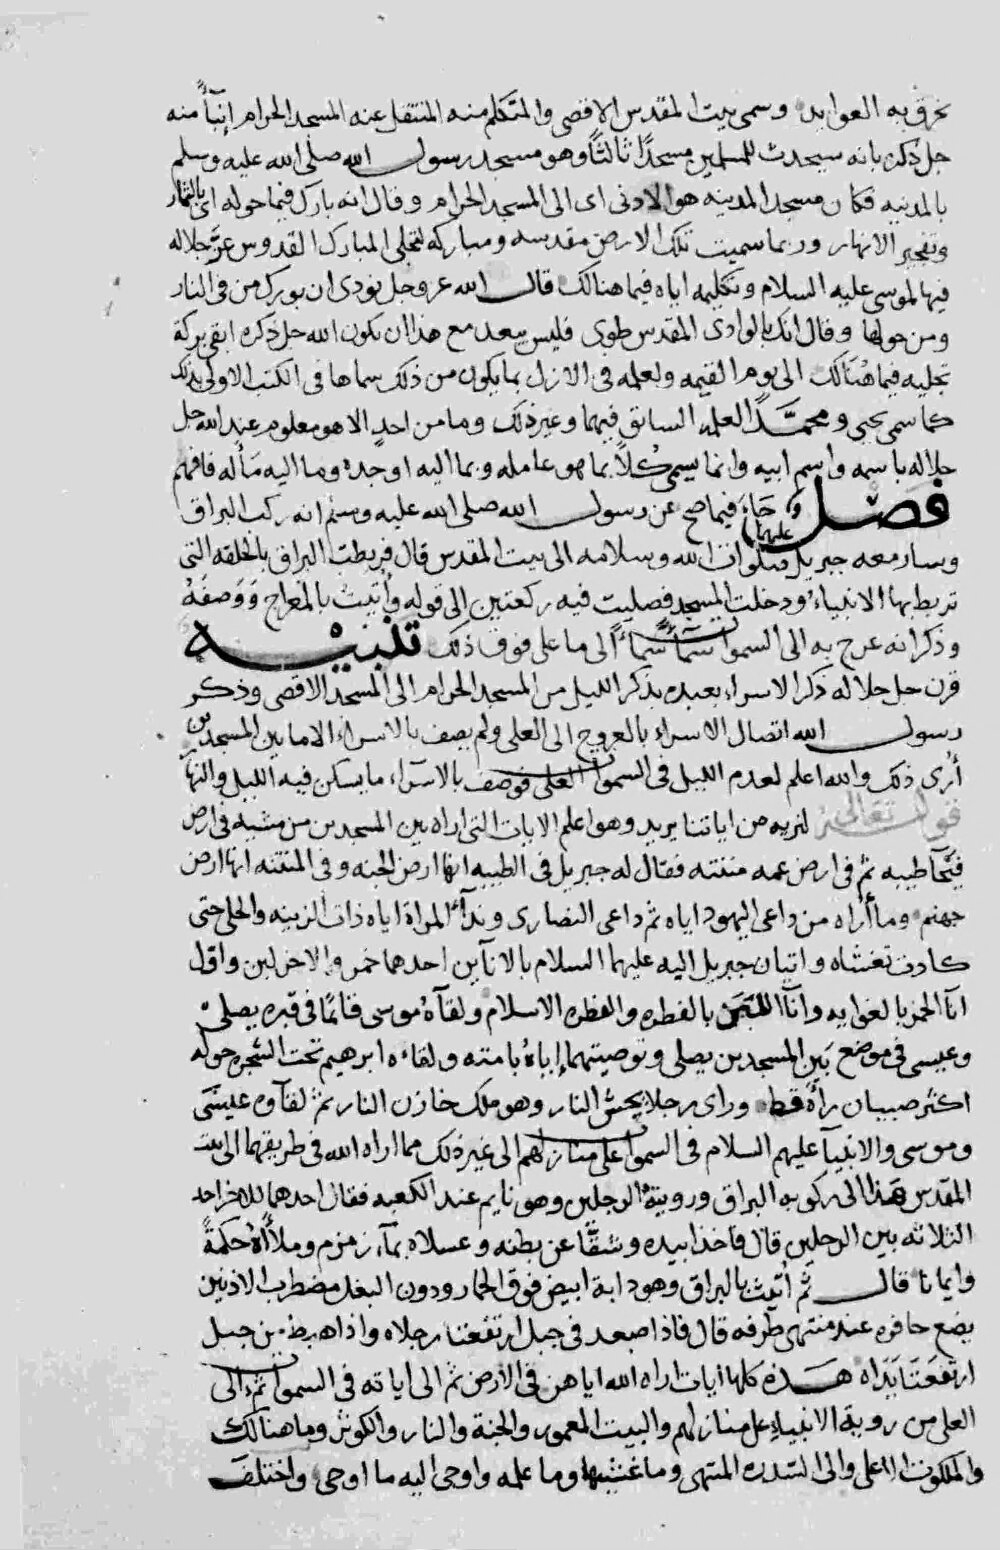 نخرق به العوايد وسمى بيت المقدس الاقصى والمتكلم منه المنتقل عنه المسجد الحرام إنبأ منه
جل ذكره بانه سيحدث للمسلمين مسجدًا ثالثًا وهو مسجد رسول الله صلى الله عليه وسلم
بالمدينه فكان مسجد المدينه هو الادنى اى الى المسجد الحرام وقال انه بارك فيما حوله اى بالثمار
وتفجير الانهار وربما سميت تلك الارض مقدسه ومباركه لتجلى المبارك القدوس عز جلاله
فيها لموسى عليه السلام وتكليمه اياه فيما هنالك قال الله عز وجل نودى ان بورك من فى النار
ومن حولها وقال انك بالوادى المقدس طوى فليس ببعد مع هذا ان يكون الله جل ذكره ابقى بركة
تجليه فيما هنالك الى يوم القيمه ولعلمه فى الازل بما يكون من ذلك سماها فى الكتب الاولى بذلك
كما سمى يحيى ومحمدًا لعلمه السابق فيهما وغير ذلك وما من احدٍ الا هو معلوم عند الله جل
جلاله باسمه واسم ابيه وانما يسمى كُلاً بما هو عامله وبما اليه اوجده وما اليه مَأله فافهم
فصل وجاء فيما صح عن رسول الله صلى الله عليه وسلم انه ركب البراق
وسار معه جبريل عليهما صلوات الله وسلامه الى بيت المقدس قال فربطت البراق بالحلقه التى
تربط بها الانبياء ودخلت المسجد فصليت فيه ركعتين الى قوله وأتيت بالمعراج وَوَصفَهُ
وذكر انه عرج به الى السموات سماءً سماءً الى ما على فوق ذلك تنبيه
قرن جل جلاله ذكر الاسراء بعبده بذكر الليل من المسجد الحرام الى المسجد الاقصى وذكر
رسول الله اتصال الاسراء بالعروج الى العلى ولم يصف بالاسراء الا ما بين المسجدين
أُرى ذلك والله اعلم لعدم الليل فى السموات العلى فوصف بالاسراء ما يسكن فيه الليل والنهار
قوله تعالى لنريه من اياتنا يريد وهو اعلم الايات التى اراه بين المسجدين من مشيه فى ارض
فيحآ طيبه ثم فى ارض غمه منتنه فقال له جبريل فى الطيبه انها ارض الجنه وفى المنتنه انها ارض
جهنم وما أراه من داعى اليهود اياه ثم داعى النصارى وندآء المراة اياه ذات الزينه والحلى حتى
كادت تغشاه واتيان جبريل اليه عليهما السلام بالانآين احدهما خمر والاخر لبن واوّل
انآ الخمر بالغوايه وانآ اللبن بالفطره والفطره الاسلام ولقآءهُ موسى قائمًا فى قبره يصلى
وعيسى فى موضع بين المسجدين يصلى وتوصيتهما إياهُ بامته ولقاءه ابرهيم تحت الشجره حوله
اكثر صبيان رأهُ قط وراى رجلا يحش النار وهو ملك خازن النار ثم لقآوه عيسى
وموسى والانبيآ عليهم السلام فى السموات على منازلهم الى غير ذلك مما اراه الله فى طريقهما الى بيت
المقدس هذا الى ركوبه البراق ورويته الرجلين وهو نايم عند الكعبه فقال احدهما للاخر احد
الثلاثه بين الرجلين قال فاخذا بيده وشقَّا عن بطنه وغسلاه بمآء زمزم وملأهُ حكمةً
وايمانا قال ثم أُتيت بالبراق وهو دابة ابيض فوق الحمار ودون البغل مضطرب الاذنين
يضع حافره عند منتهى طرفه قال فاذا صعد فى جبل ارتفعتا رجلاه واذا هبط من جبل
ارتفعَتَا يَدَاه هذه كلها ايات اراه الله اياهن فى الارض ثم الى اياته فى السموات ثم الى
العلى من روية الانبياء على منازلهم والبيت المعمور والجنة والنار والكوثر وما هنالك
والملكوت الاعلى والى السدره المنتهى وما غشيها وما علمه واوحى اليه ما اوحى واختلف